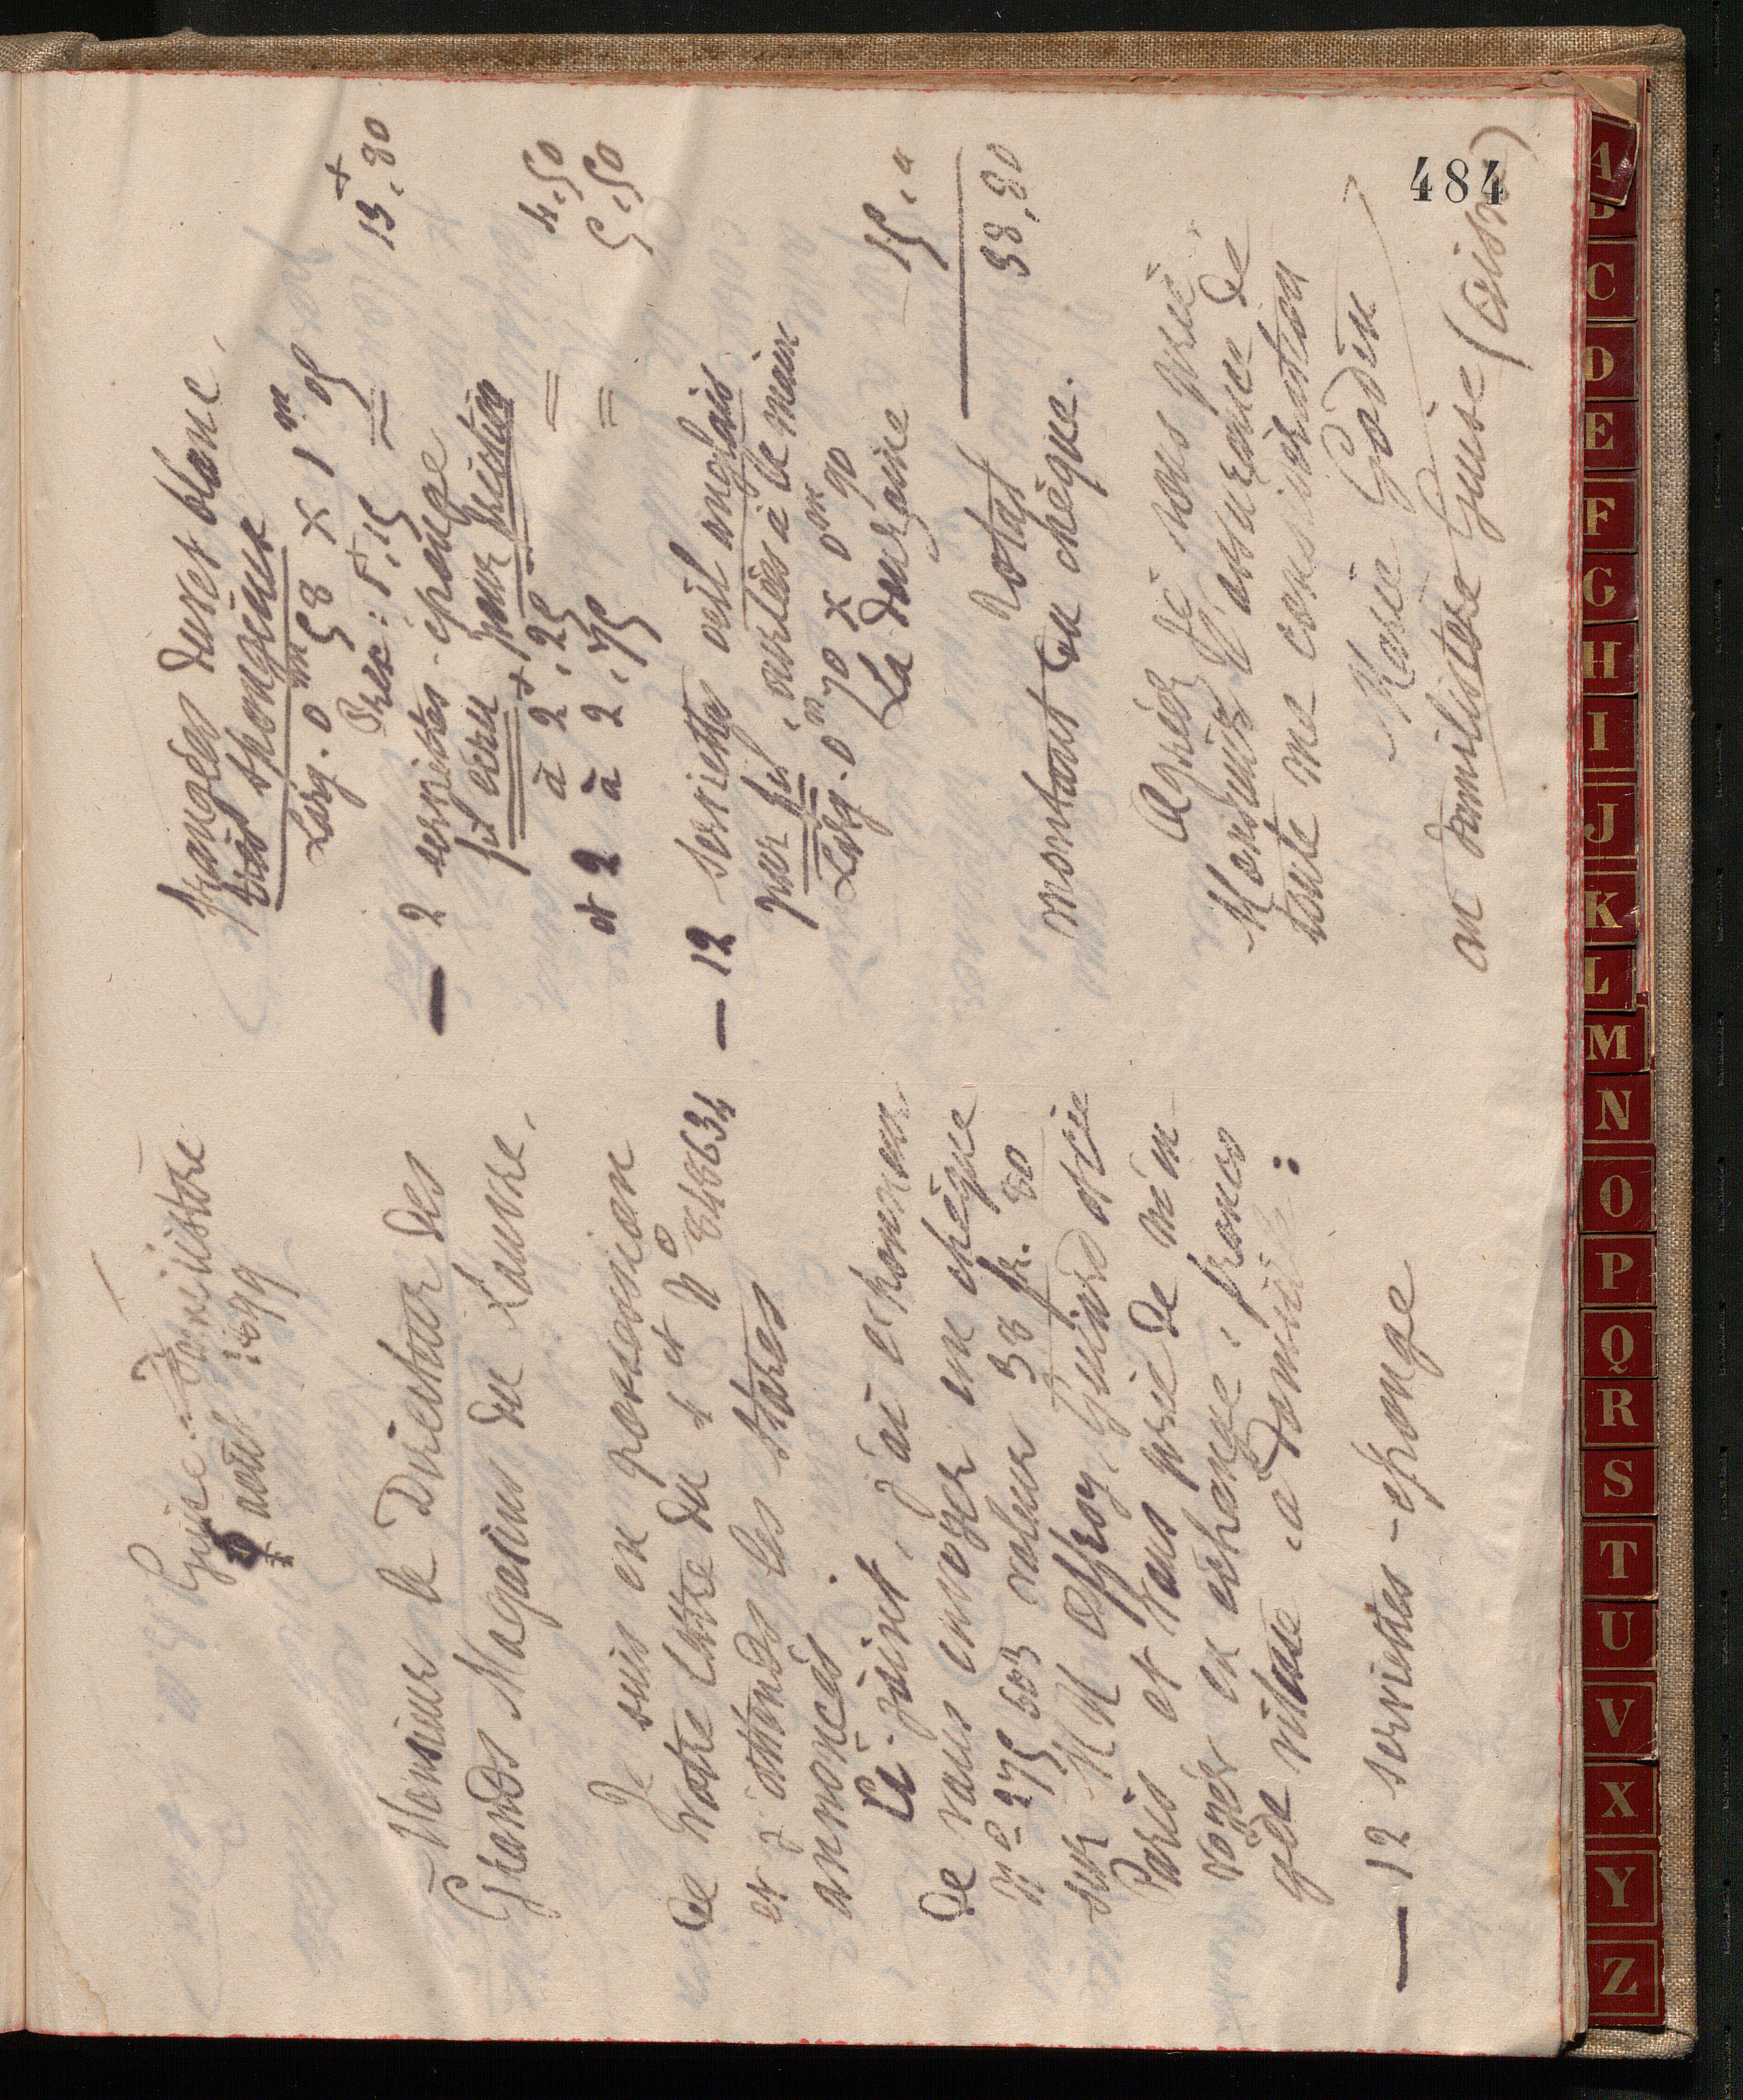 Guise. Familistère
5 août 1899
Monsieur le Directeur des
Grands Magasins du Louvre,
Je suis en possession
de votre lettre du 4 et N° 848634
et j'attends les stores
annoncés.
Ci-joint, j'ai l'honneur
de vous envoyer un chèque
N° 275503 valeur 38 fr. 80
sur MM Offroy, Guiard et Cie
Paris et vous prie de m'en
voyer en échange, franco
gde vitesse, à domicile:
— 12 serviettes-éponge
frangées duvet blanc,
très spongieux
Larg. 0m58 × 1m05
Prix: 1,15 = 13,80
— 2 serviettes-éponge
fil écru pour friction
à 2,25 = 4,50
et 2 à 2,75 = 5,50
— 12 serviettes oeil anglais
pur fil, ourlées à la main
Larg. 0m70 × 0m90
La douzaine 15,"
Total 38,80
montant du chèque.
Agréez je vous prie
Monsieur l'assurance de
toute ma considération
Marie Godin
au Familistère Guise (Aisne)
484
A
C
D
E
F
G
H
I
J
K
L
M
N
O
P
Q
R
S
T
U
V
X
Y
Z